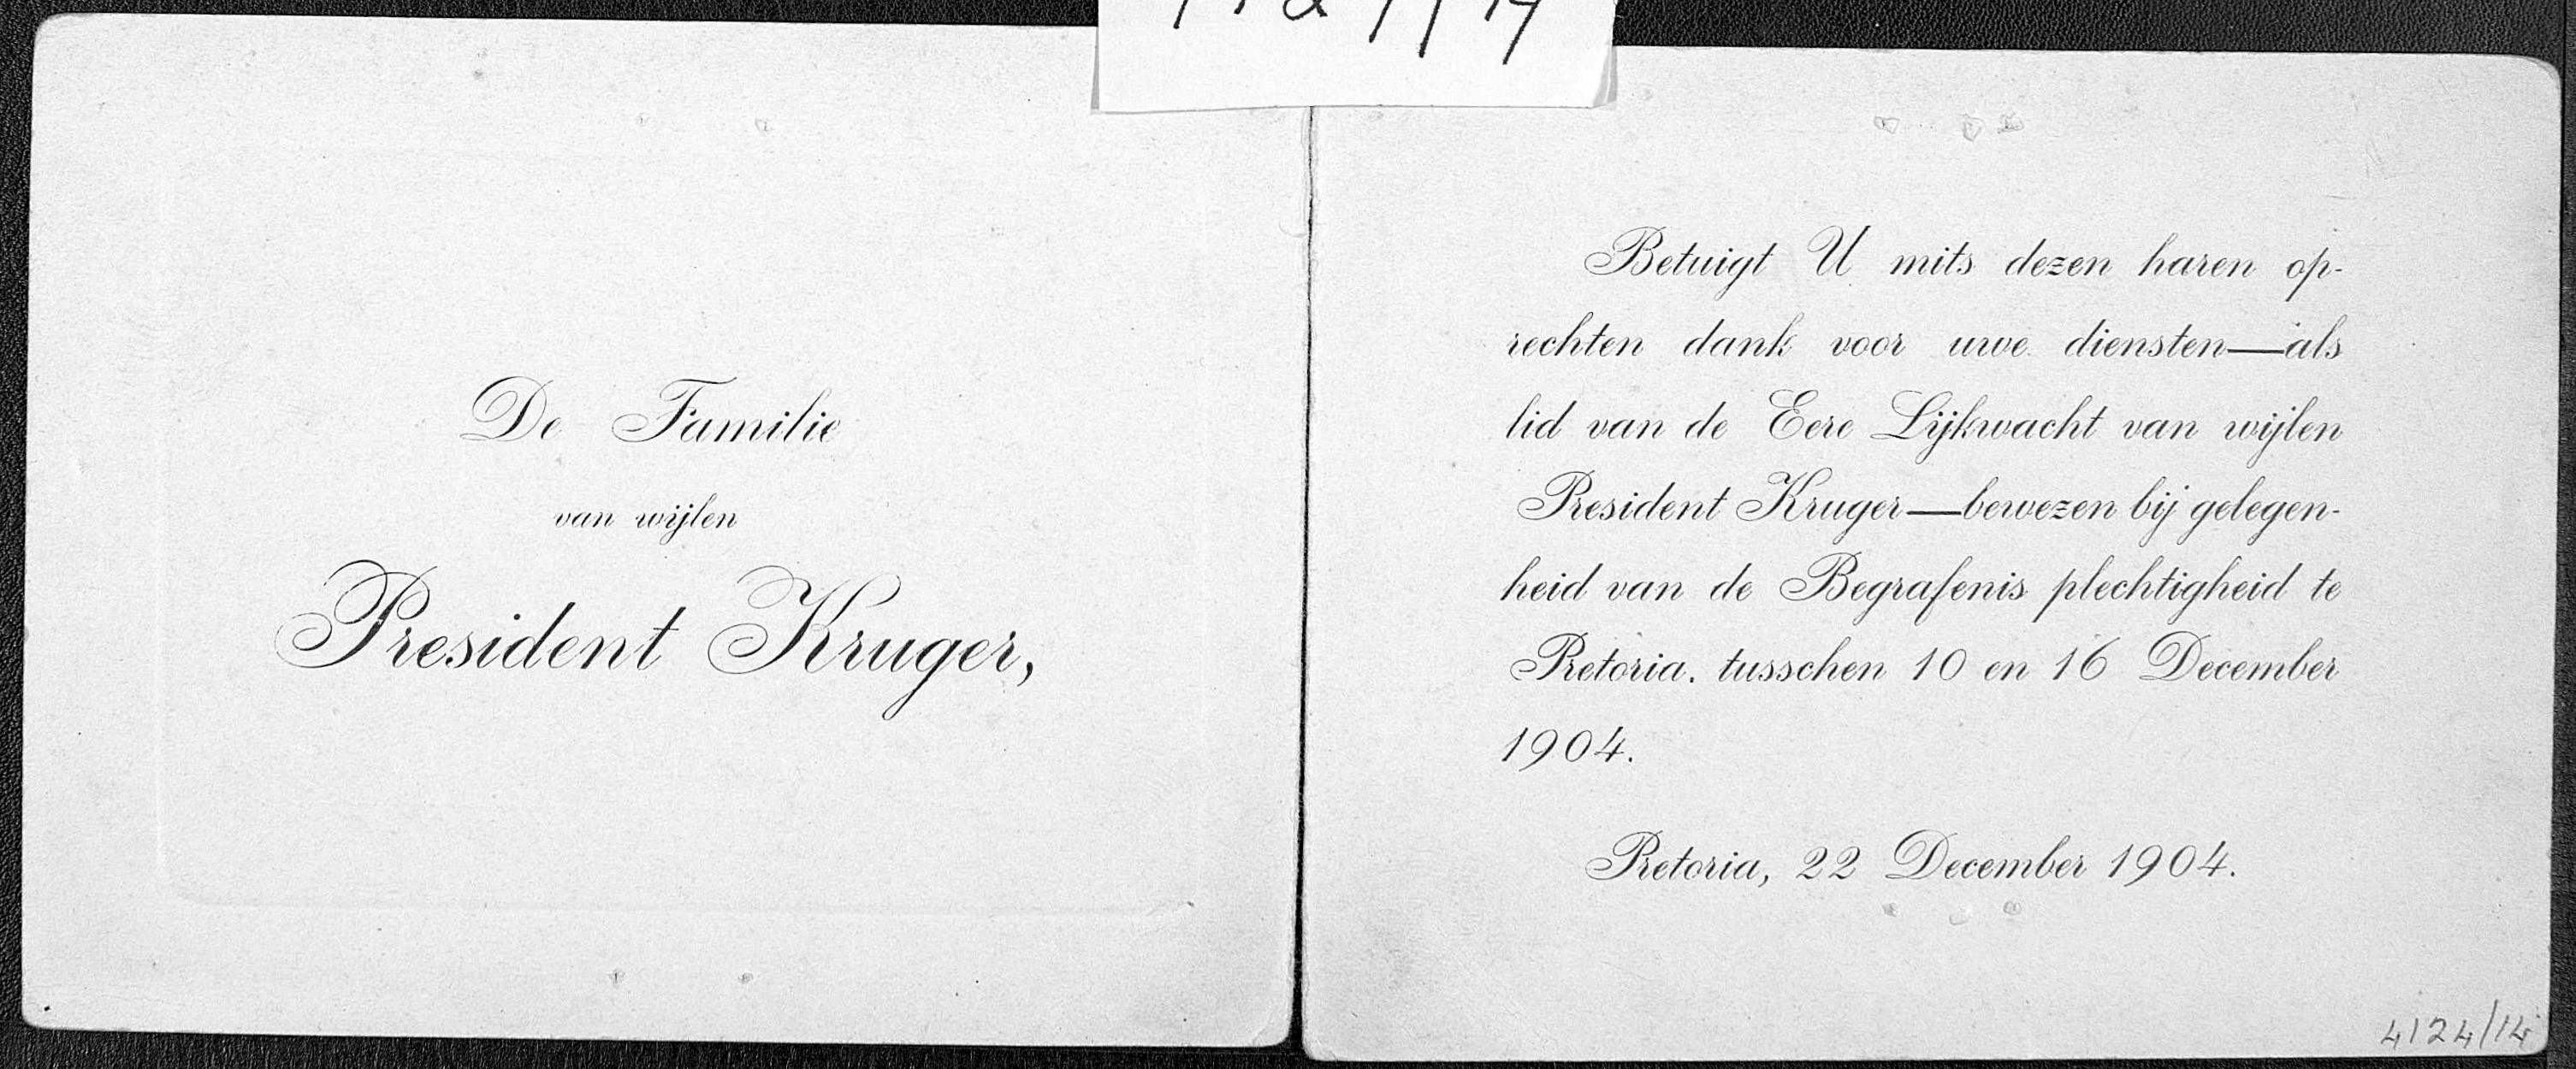 De Familie
van wijlen
President Kruger,
Betuigt U mits dezen haren op-
rechten dank voor uwe diensten—als
lid van de Eere Lijkwacht van wijlen
President Kruger—bewezen bij gelegen-
heid van de Begrafenis plechtigheid te
Pretoria. tusschen 10 en 16 December
1904.
Pretoria, 22 December 1904.
4124/14